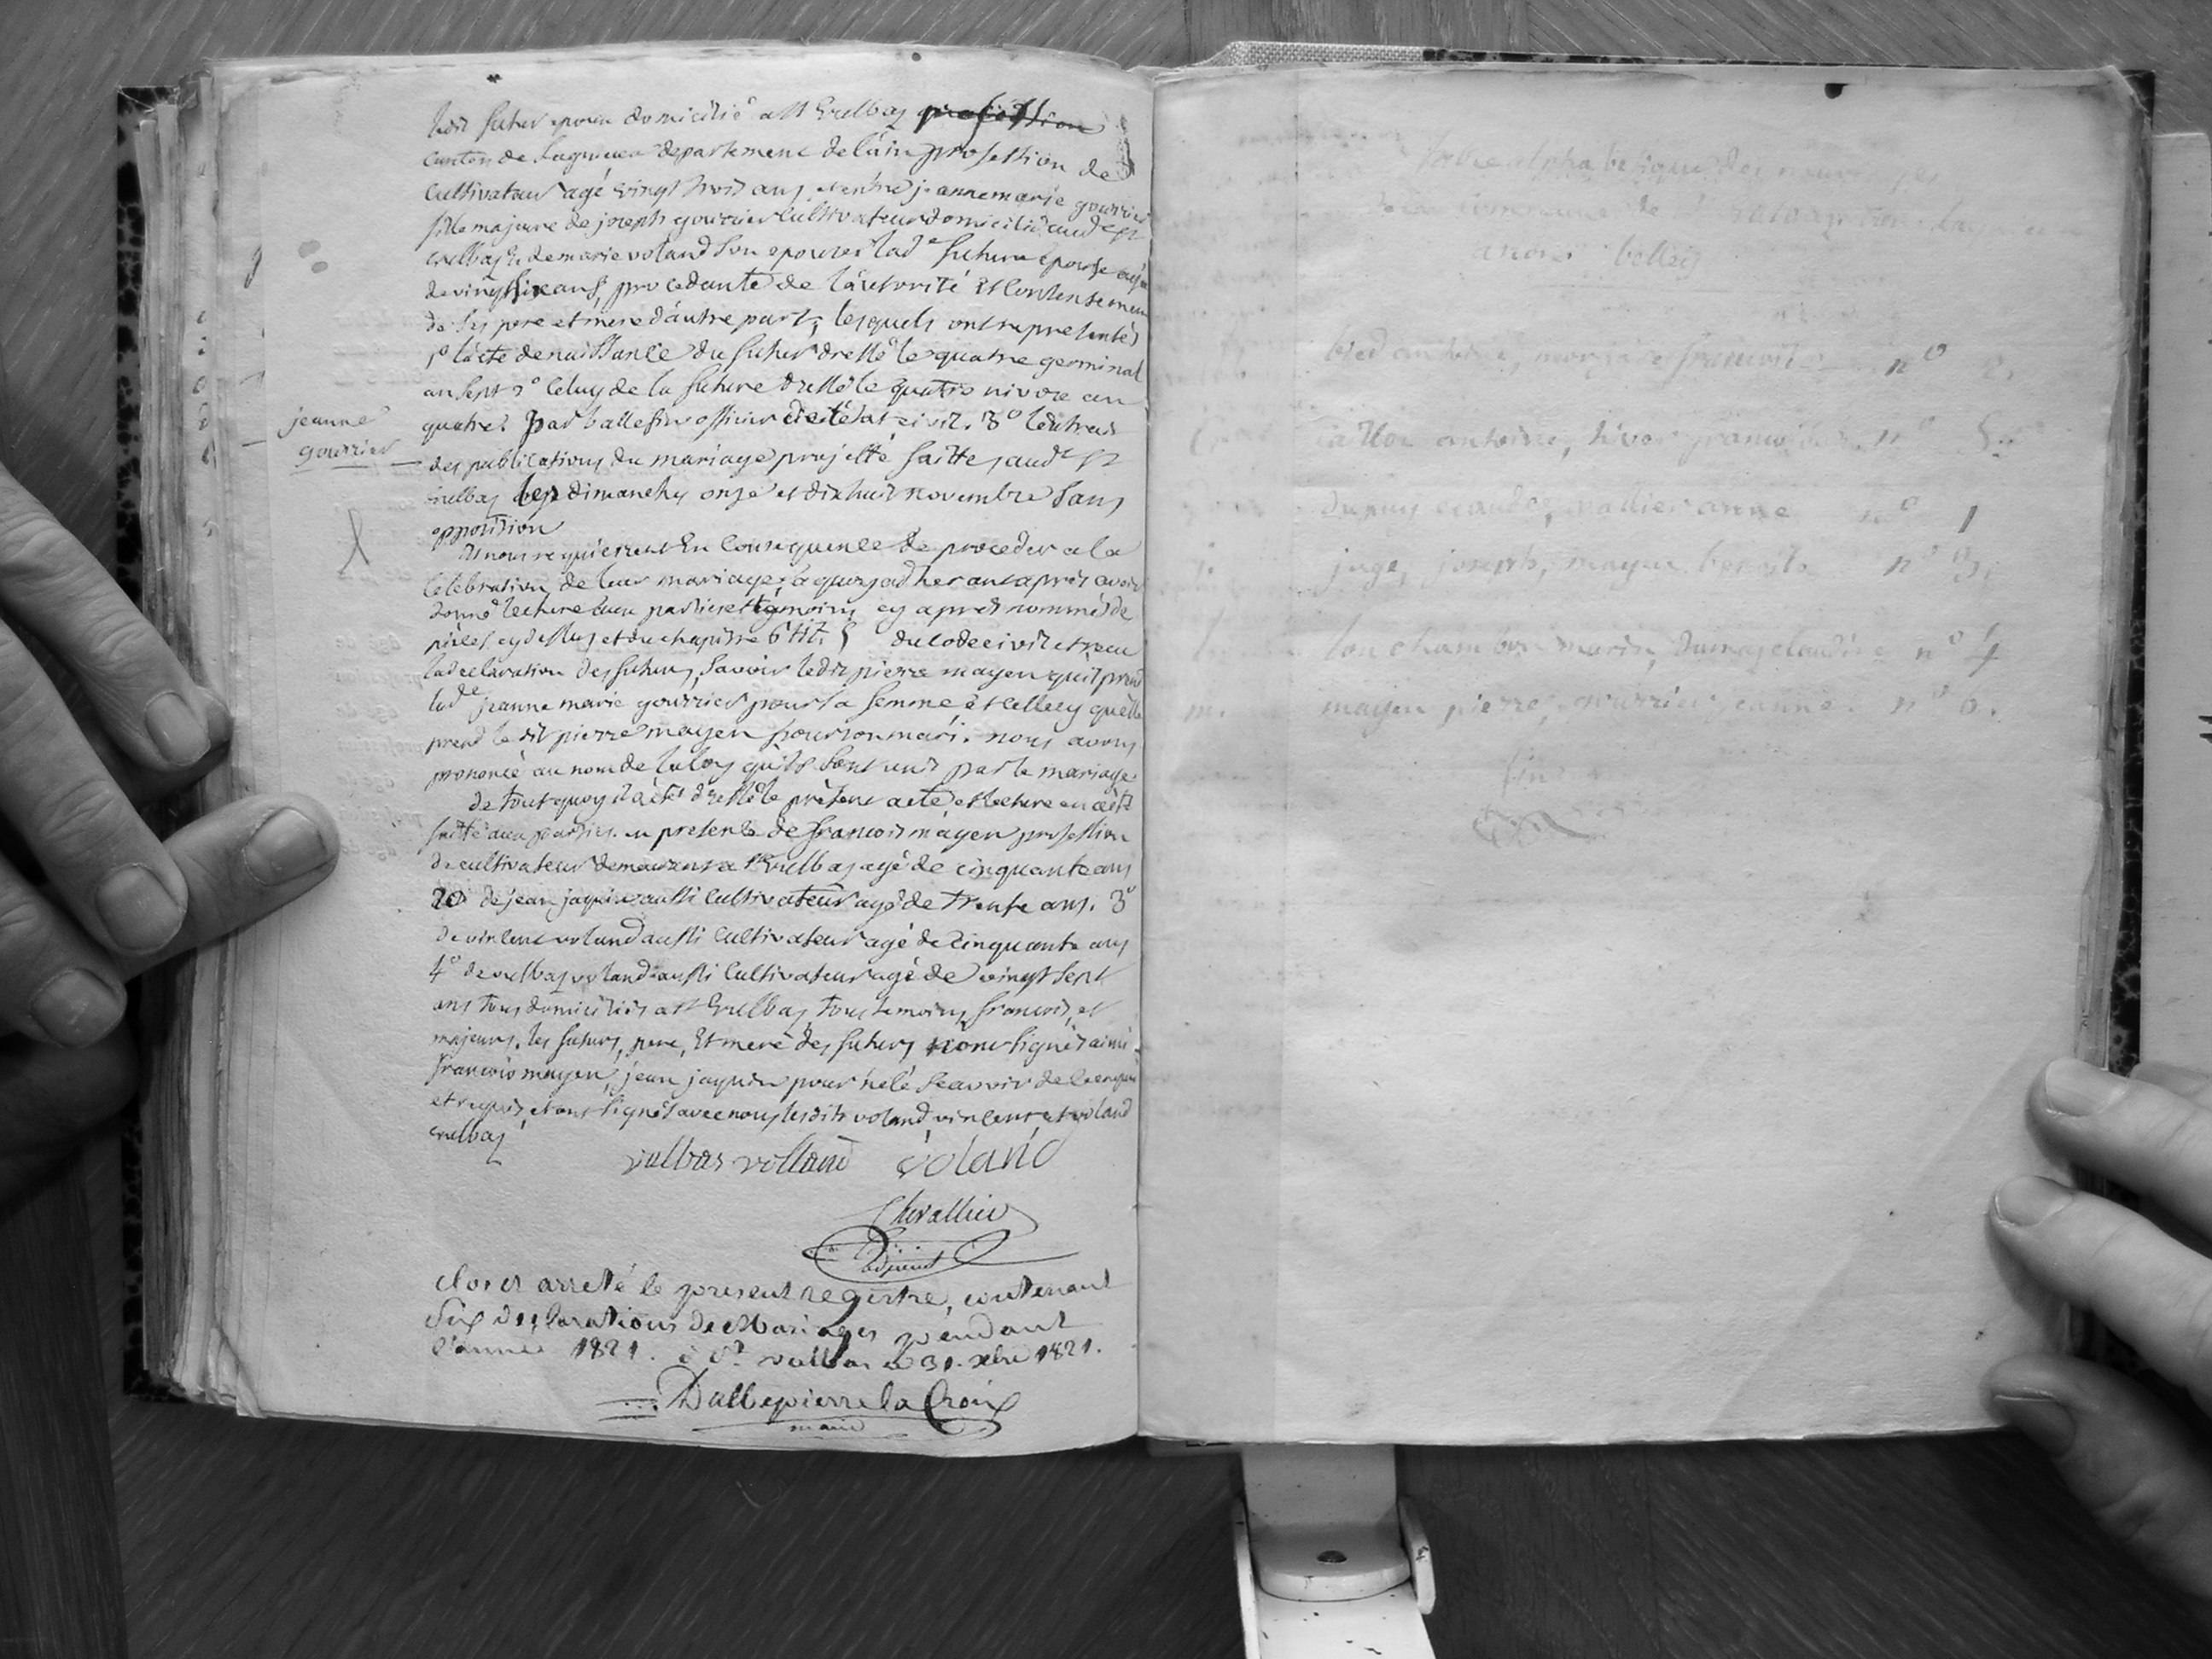 ledit futur epoux domicilié a St Vulbas profession
canton de Lagnieu departement de l'ain profession de
cultivateur agé vingt trois ans, et entre jeanne marie gourrier
fille majeure de joseph gourrier cultivateur domicilié aud. St
vulbas et de marie voland son epouse lade future epouse agée
de vingt six ans, procedante de l'autorité et Consentement
de ses pere et mere d'autre part, lesquels ont representés
1o l'acte de naissance du futur dressé le quatre germinal
an sept 2o Celuy de la future dressé le quatre nivose an
quatre. par ballefin officier de l'état civil. 3o l'extrait
jeanne
gourrier
des publications du mariage projetté faittes aud. St
vulbas les dimanches onze et dixhuit novembre sans
opposition
et nous requierent En Consequence de proceder a la
Celebration de leur mariage, a quoy adherant apres avoir
donné lecture aux parties et temoins cy apres nommés de
pieces cy dessus et du chapitre 6 tit. 5 du Code civil et recu
la declaration des futurs, Savoir ledit pierre mayen qu'il prend
lade jeanne marie gourrier pour sa femme et Cellecy qu'elle
prend le dit pierre mayen pour son mari. nous avons
prononcé au nom de la loy qu'ils sont unis par le mariage
de tout quoy il a été dressé le présent acte et lecture en a été
faitte aux parties. en presence de francois mayen profession
de cultivateur demeurant a St Vulbas agé de cinquante ans
2o de jean jaquin aussi Cultivateur agé de trente ans. 3o
de vincent voland aussi Cultivateur agé de Cinquante ans
4o de vulbas voland aussi Cultivateur agé de vingt sept
ans tous domiciliés a St Vulbas, tous temoins francois, et
majeurs. les futurs, pere, Et mere des futurs n'ont signés ainsi
francois mayen, jean jaquin pour ne le Scavoir de ce enquis
et requis, et ont signés avec nous lesdits voland vincent, et voland
vulbas
vulbas volland voland
Chevallier
adjoint
clos et arreté le present registre, contenant
Six declarations de Mariages pendant
l'année 1821. à St. vulbas le 31. xbre 1821.
Dallepierre la Croix
maire
antoine, francoise no 2.
antoine, no 5.
anne no 1
juge, joseph, mayen benoite no 3.
marin, dumas claudine no 4
m. mayen pierre, gourrier jeanne. no 6.
fin